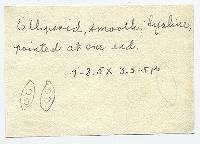 Ellipsoid, smooth, hyaline,
pointed at one end.
7-8.5 X 3.5-5 µ